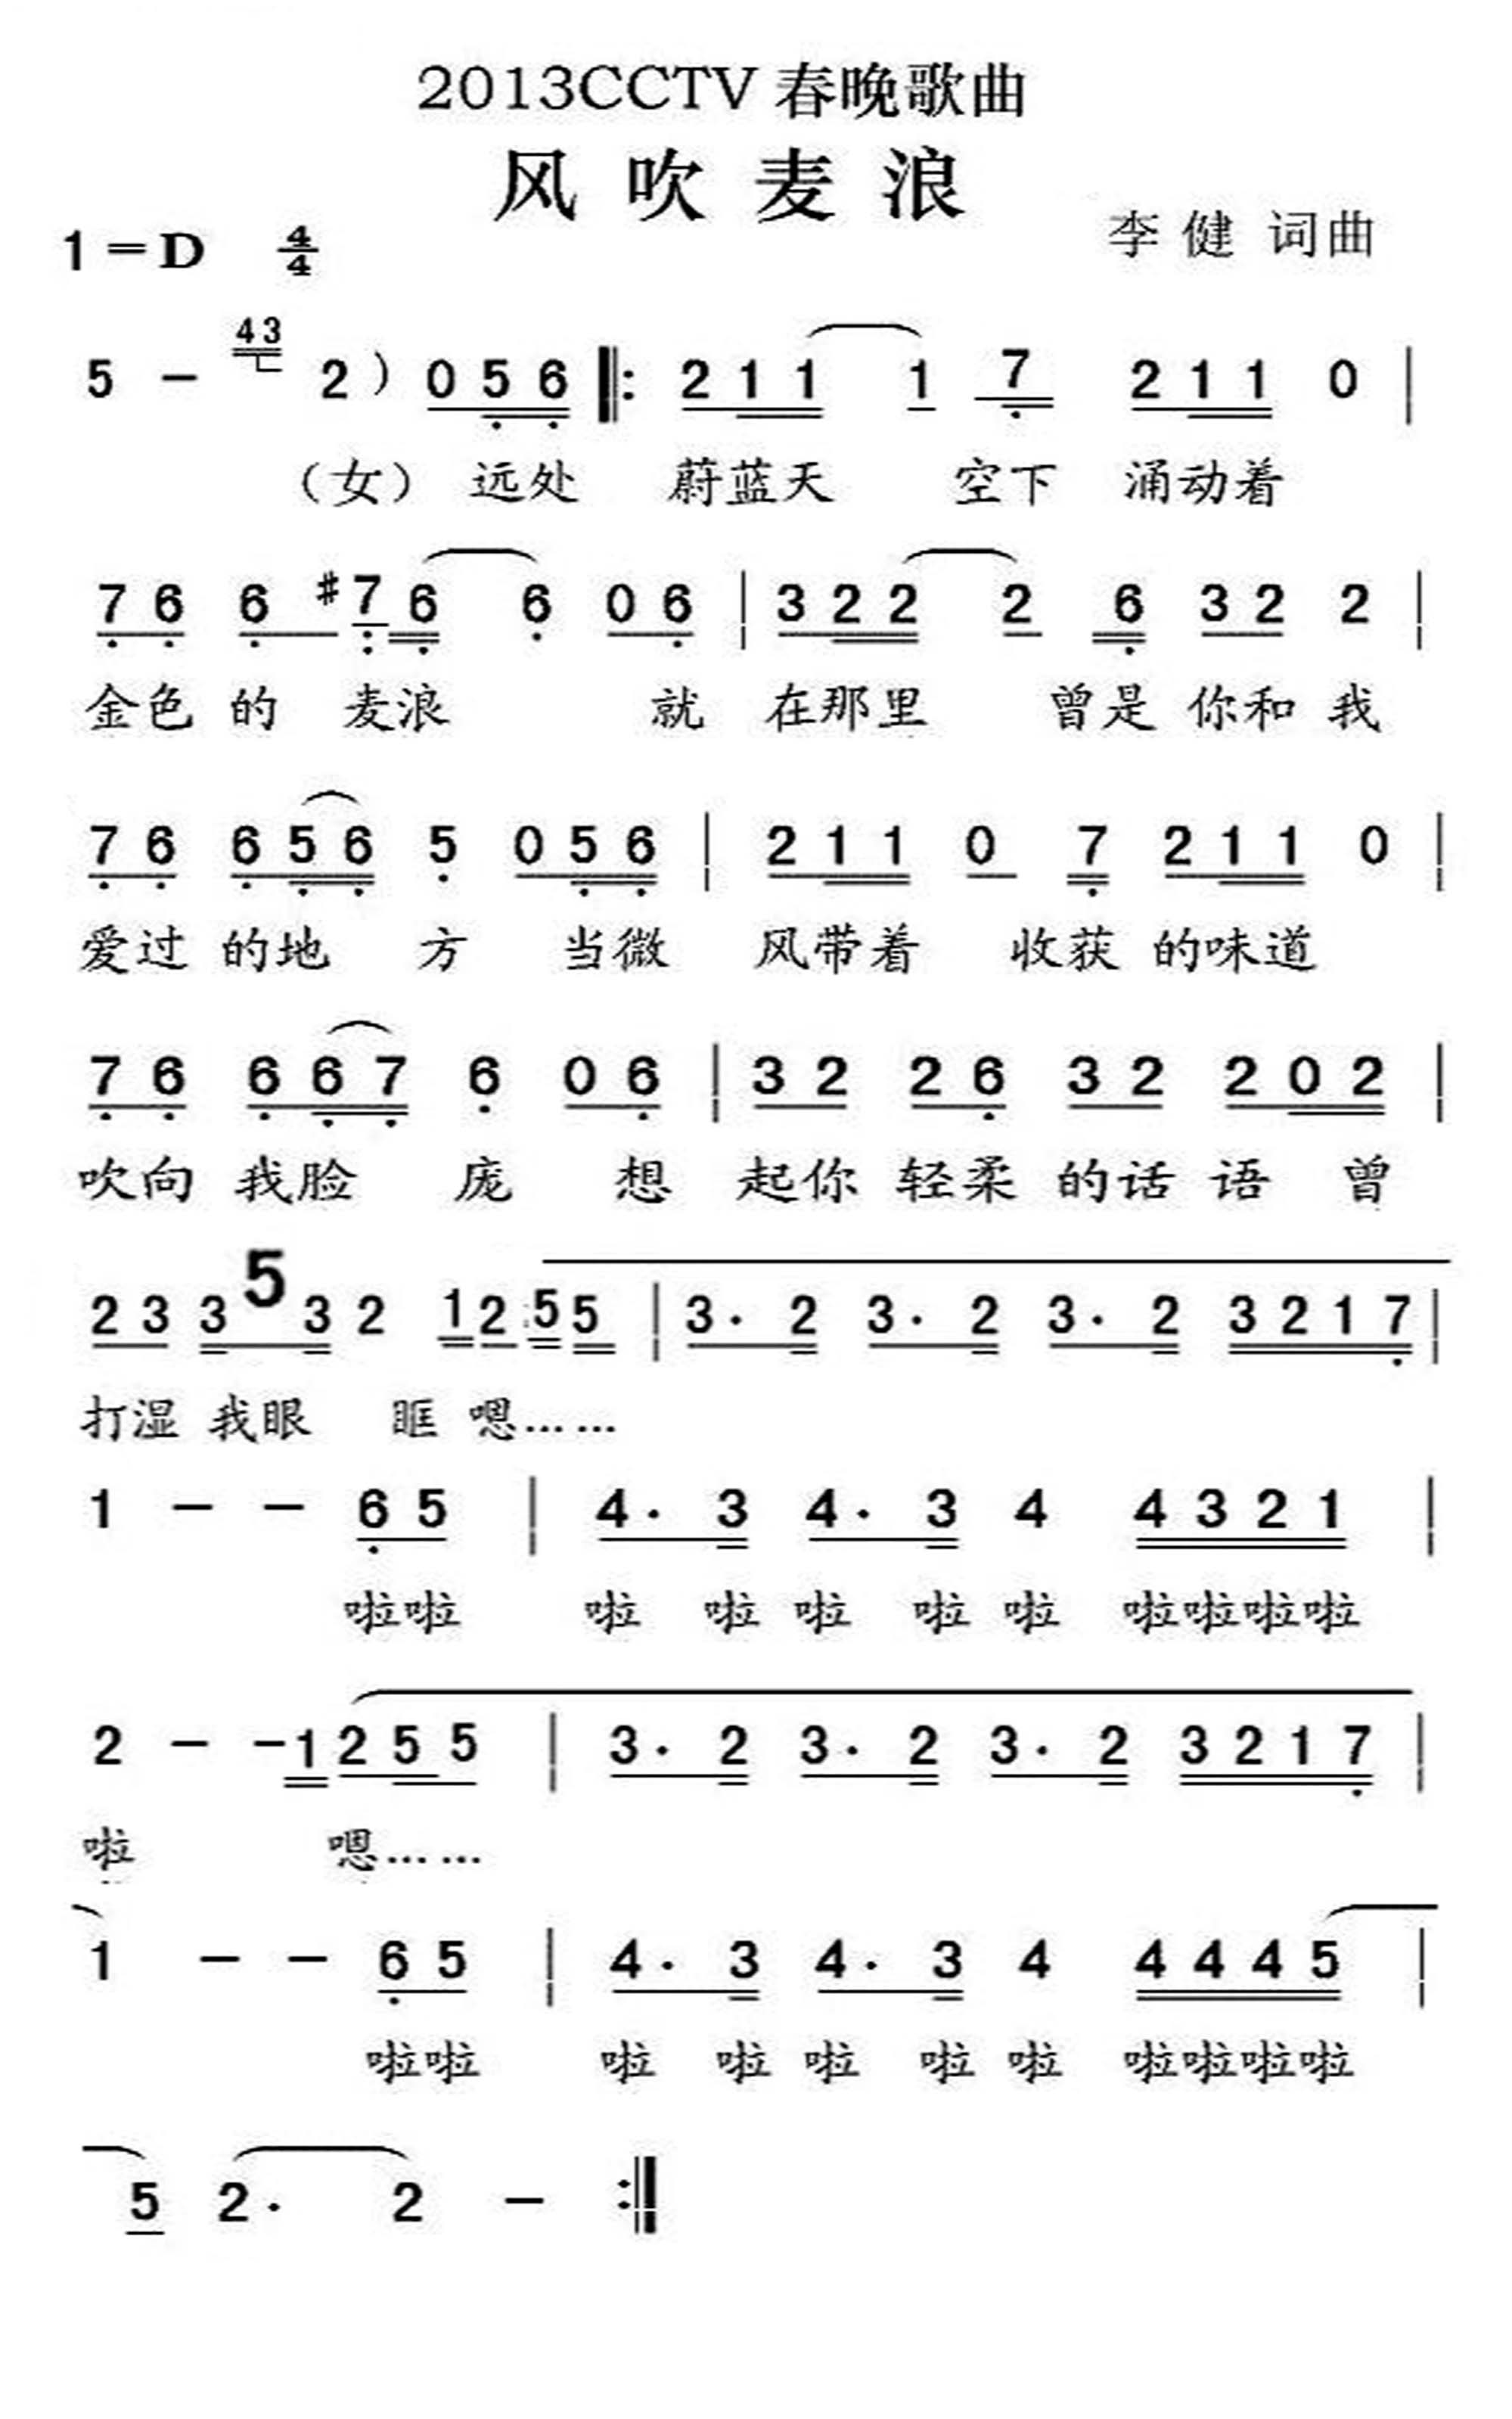 2013CCTV 春晚歌曲
风 吹 麦 浪
1=D 4/4 李 健 词曲
5 - 43 2 ) 0 5 6 ‖: 2 1 1 1 7 2 1 1 0 |
（女） 远处 蔚蓝天 空下 涌动着
7 6 6 #7 6 6 0 6 | 3 2 2 2 6 3 2 2 |
金色 的 麦浪 就 在那里 曾是 你和 我
7 6 6 5 6 5 0 5 6 | 2 1 1 0 7 2 1 1 0 |
爱过 的地 方 当微 风带着 收获 的味道
7 6 6 6 7 6 0 6 | 3 2 2 6 3 2 2 0 2 |
吹向 我脸 庞 想 起你 轻柔 的话 语 曾
2 3 3 5 3 2 1 2 5 5 | 3· 2 3· 2 3· 2 3 2 1 7 |
打湿 我眼 眶 嗯……
1 - - 6 5 | 4· 3 4· 3 4 4 3 2 1 |
啦啦 啦 啦 啦 啦 啦 啦啦啦啦
2 - - 1 2 5 5 | 3· 2 3· 2 3· 2 3 2 1 7 |
啦 嗯……
1 - - 6 5 | 4· 3 4· 3 4 4 4 4 5 |
啦啦 啦 啦 啦 啦 啦 啦啦啦啦
5 2· 2 - :‖